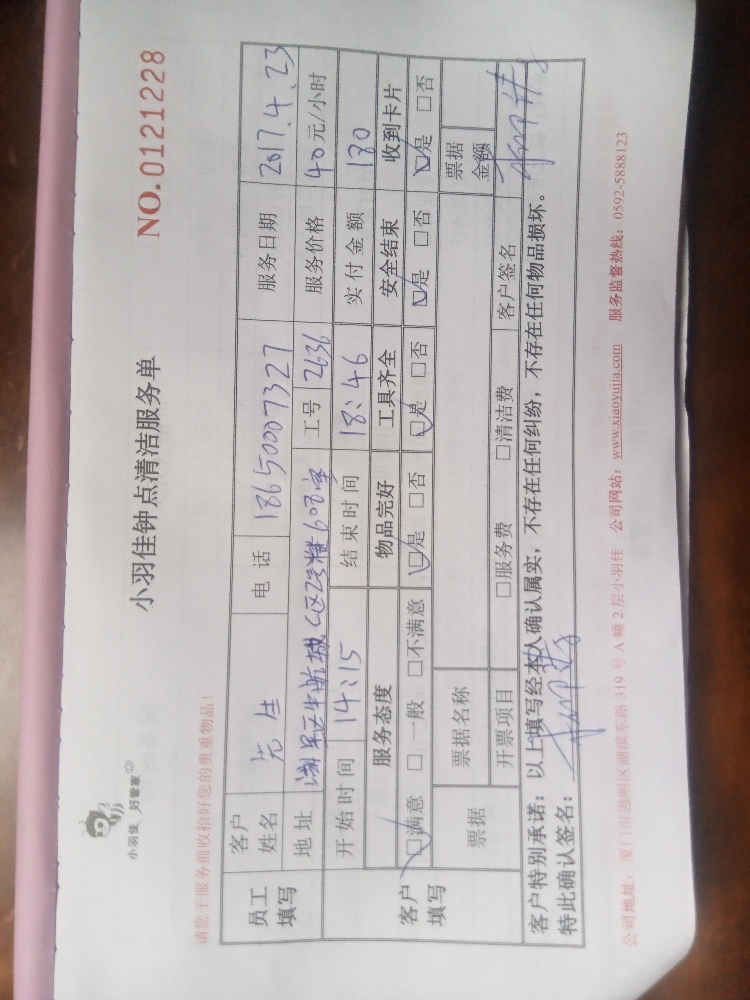 小羽佳 好管家
小羽佳钟点清洁服务单
NO.0121228
请您于服务前收拾好您的贵重物品！
员工填写
客户姓名 先生 电话 18650007327 服务日期 2017.4.23
地址 C区2号楼608室 工号 2636 服务价格 40元/小时
开始时间 14:15 结束时间 18:46 实付金额 180
客户填写
服务态度 物品完好 工具齐全 安全结束 收到卡片
☑满意 □一般 □不满意 ☑是 □否 ☑是 □否 ☑是 □否 ☑是 □否
票据 票据名称 票据金额
开票项目 □服务费 □清洁费 客户签名
客户特别承诺：以上填写经本人确认属实，不存在任何纠纷，不存在任何物品损坏。
特此确认签名：
公司地址：厦门市思明区湖滨东路 319 号 A 幢 2 层小羽佳 公司网站：www.xiaoyujia.com 服务监督热线：0592-5888123